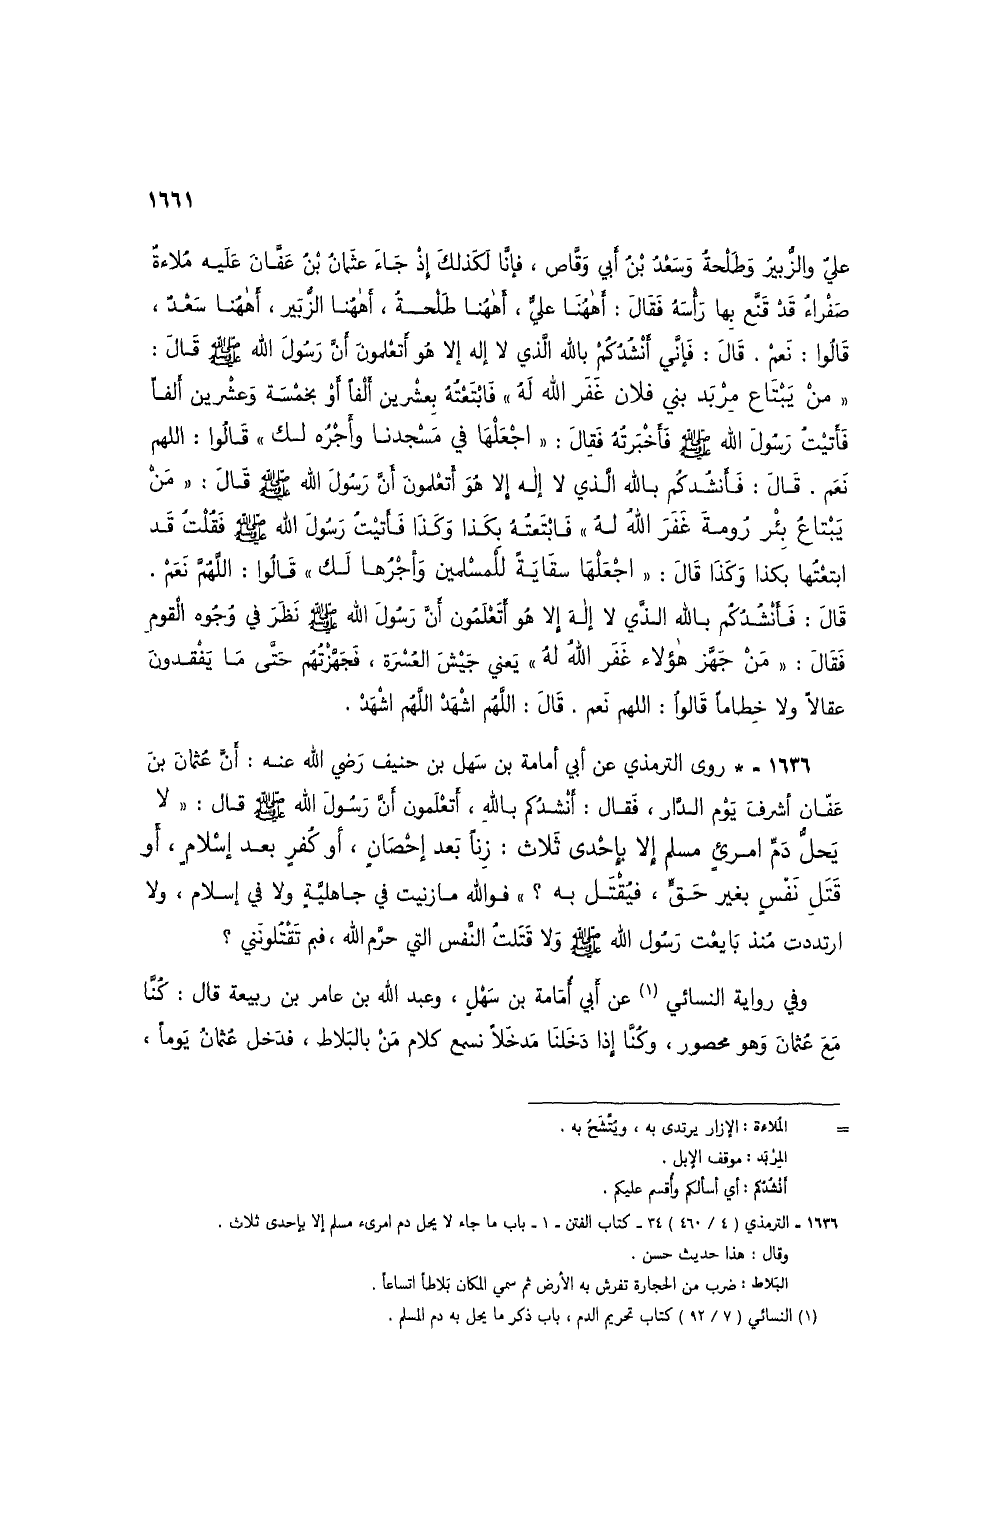 ١٦٦١
عليٌ والزُّبيرُ وَطَلْحةُ وَسَعْدُ بْنُ أَبي وَقَّاص ، فإنَّا لَكَذلكَ إذْ جَاءَ عثَمانُ بْنُ عَفَّانَ عَلَيه مُلاءةٌ
صَفْراءُ قَدْ قَنَّع بها رَأْسَهُ فَقالَ : أَهٰهُنَا عليٌّ ، أَهٰهُنا طَلْحةُ ، أَهٰهُنا الزُّبَير ، أَهٰهُنا سَعْدٌ ،
قَالُوا : نَعمْ . قَالَ : فَإنَّي أَنْشُدُكُمْ بالله الَّذي لا إله إلا هُو أَتعْلمونَ أَنَّ رَسُولَ الله ﷺ قَالَ :
« منْ يَبْتَاع مِرْبَد بني فلان غَفَر الله لَهُ » فَابْتَعْتُهُ بِعشْرين أَلْفاً أَوْ بخمْسة وَعشْرين أَلفاً
فَأَتيْتُ رَسُولَ الله ﷺ فَأَخْبَرتُهُ فَقالَ : « اجْعَلْهَا في مَسْجدنا وأَجْرُه لك » قَالُوا : اللهم
نَعَم . قَالَ : فَأَنشُدكُم بالله الَّذي لا إلٰه إلا هُوَ أَتعْلمونَ أَنَّ رَسُولَ الله ﷺ قَالَ : « مَنْ
يَبْتاعُ بِئْر رُومةَ غَفَرَ اللهُ لهُ » فَابْتَعتُهُ بِكَذا وَكَذَا فَأَتيْتُ رَسُولَ الله ﷺ فَقُلْتُ قَد
ابتعْتُها بكذا وَكَذَا قَالَ : « اجْعَلْهَا سقَايَةً للْمسْلمين وَأجْرُها لَك » قَالُوا : اللَّهُمَّ نَعَمْ .
قَالَ : فَأَنْشُدُكُم بالله الذَّي لا إلٰهَ إلا هُو أَتَعْلَمُون أَنَّ رَسُولَ الله ﷺ نَظَرَ في وُجُوه الْقومِ
فَقَالَ : « مَنْ جَهَّز هٰؤلاء غَفَر اللهُ لهُ » يَعني جَيْشَ العُسْرَة ، فَجَهَّزْتُهُم حَتَّى مَا يَفْقدونَ
عقالاً ولا خطاماً قَالواُ : اللهم نَعم . قَالَ : اللَّهُم اشْهَدْ اللَّهُم اشْهَدْ .
١٦٣٦ - * روى الترمذي عن أبي أمامة بن سَهْل بن حنيف رَضي الله عنه : أَنَّ عُثمانَ بنَ
عَفّان أشرفَ يَوْم الدَّار ، فَقال : أَنْشدُكم بالله ، أَتعْلَمون أَنَّ رَسُولَ الله ﷺ قال : « لا
يَحلُّ دَمّ امرئٍ مسلم إلا بإحْدى ثَلاث : زِناً بَعد إحْصَانٍ ، أو كُفرٍ بعد إسْلامٍ ، أَو
قَتَلِ نَفْسٍ بغير حَقٍّ ، فيُقْتَل به ؟ » فوالله مازنيت في جاهليَّةٍ ولا في إسلام ، ولا
ارتددت مُنذ بَايعْت رَسُول الله ﷺ وَلا قَتَلتُ النَّفس التي حرَّم الله ، فبم تَقْتُلونَني ؟
وفي رواية النسائي (١) عن أَبي أُمَامة بن سَهْلٍ ، وعبد الله بن عامر بن ربيعة قال : كُنَّا
مَعَ عُثمانَ وَهو محصور ، وكُنَّا إذا دَخَلنَا مَدخَلاً نسمع كلام مَنْ بالبَلاط ، فدَخل عُثمانُ يَوماً ،
= المُلاءة : الإزار يرتدى به ، ويُتَّشَحُ به .
المِرْبَد : موقف الإبل .
أَنْشُدُكم : أي أسألكم وأُقسم عليكم .
١٦٣٦ - الترمذي ( ٤ / ٤٦٠ ) ٣٤ - كتاب الفتن - ١ - باب ما جاء لا يحل دم امرىء مسلم إلا بإحدى ثلاث .
وقال : هذا حديث حسن .
البَلاط : ضرب من الحجارة تفرش به الأرض ثم سمي المكان بَلاطاً اتساعاً .
(١) النسائي ( ٧ / ٩٢ ) كتاب تحريم الدم ، باب ذكر ما يحل به دم المسلم .